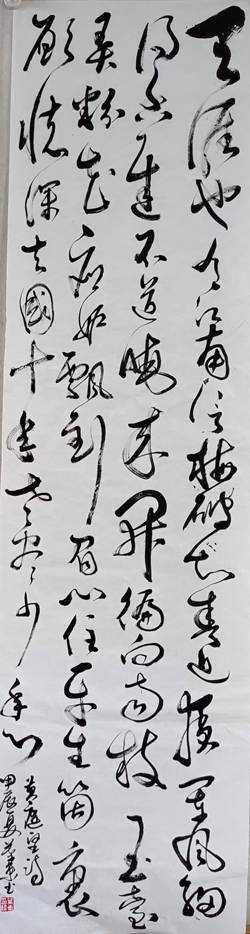 天涯也有江南信梅破知春近夜阑风细
得香迟不道晓来开徧向南枝玉臺
弄粉花应妬飄到眉心住平生箇裏
願杯深去國十年老尽少年心
黄庭坚诗
甲辰夏